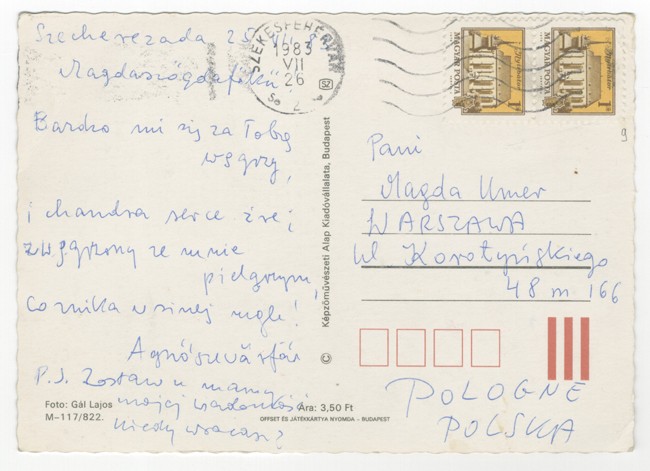 Szecherezada 25. VII. 83
Magdaszögdafekü
Bardzo mi się za Tobą
węgrzy,
i chandra serce żre;
zwęgrzony ze mnie
pielgrzym,
co znika w sinej mgle!
Agnöszevásfár
P.S. Zostaw u mamy
mojej wiadomość
kiedy wracasz?
Foto: Gál Lajos
M–117/822.
Ára: 3,50 Ft
OFFSET ÉS JÁTÉKKÁRTYA NYOMDA – BUDAPEST
© Képzőművészeti Alap Kiadóvállalata, Budapest
SZÉKESFEHÉRVÁR
1983
VII
26
SZ
MAGYAR POSTA
1Ft
MAGYAR POSTA
1Ft
9
Pani
Magda Umer
WARSZAWA
Ul Korotyńskiego
48 m 166
POLOGNE
POLSKA